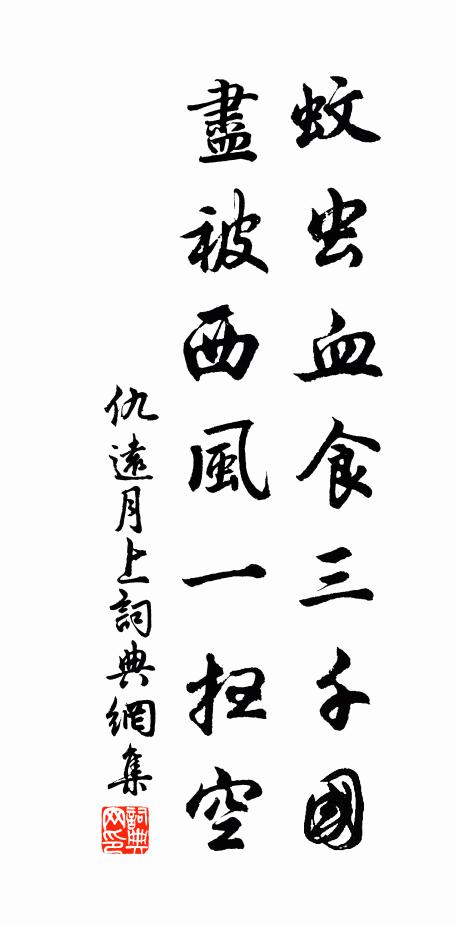 蚊虫血食三千國
盡被西風一扫空
仇遠月上詞典網集
詞典
网印